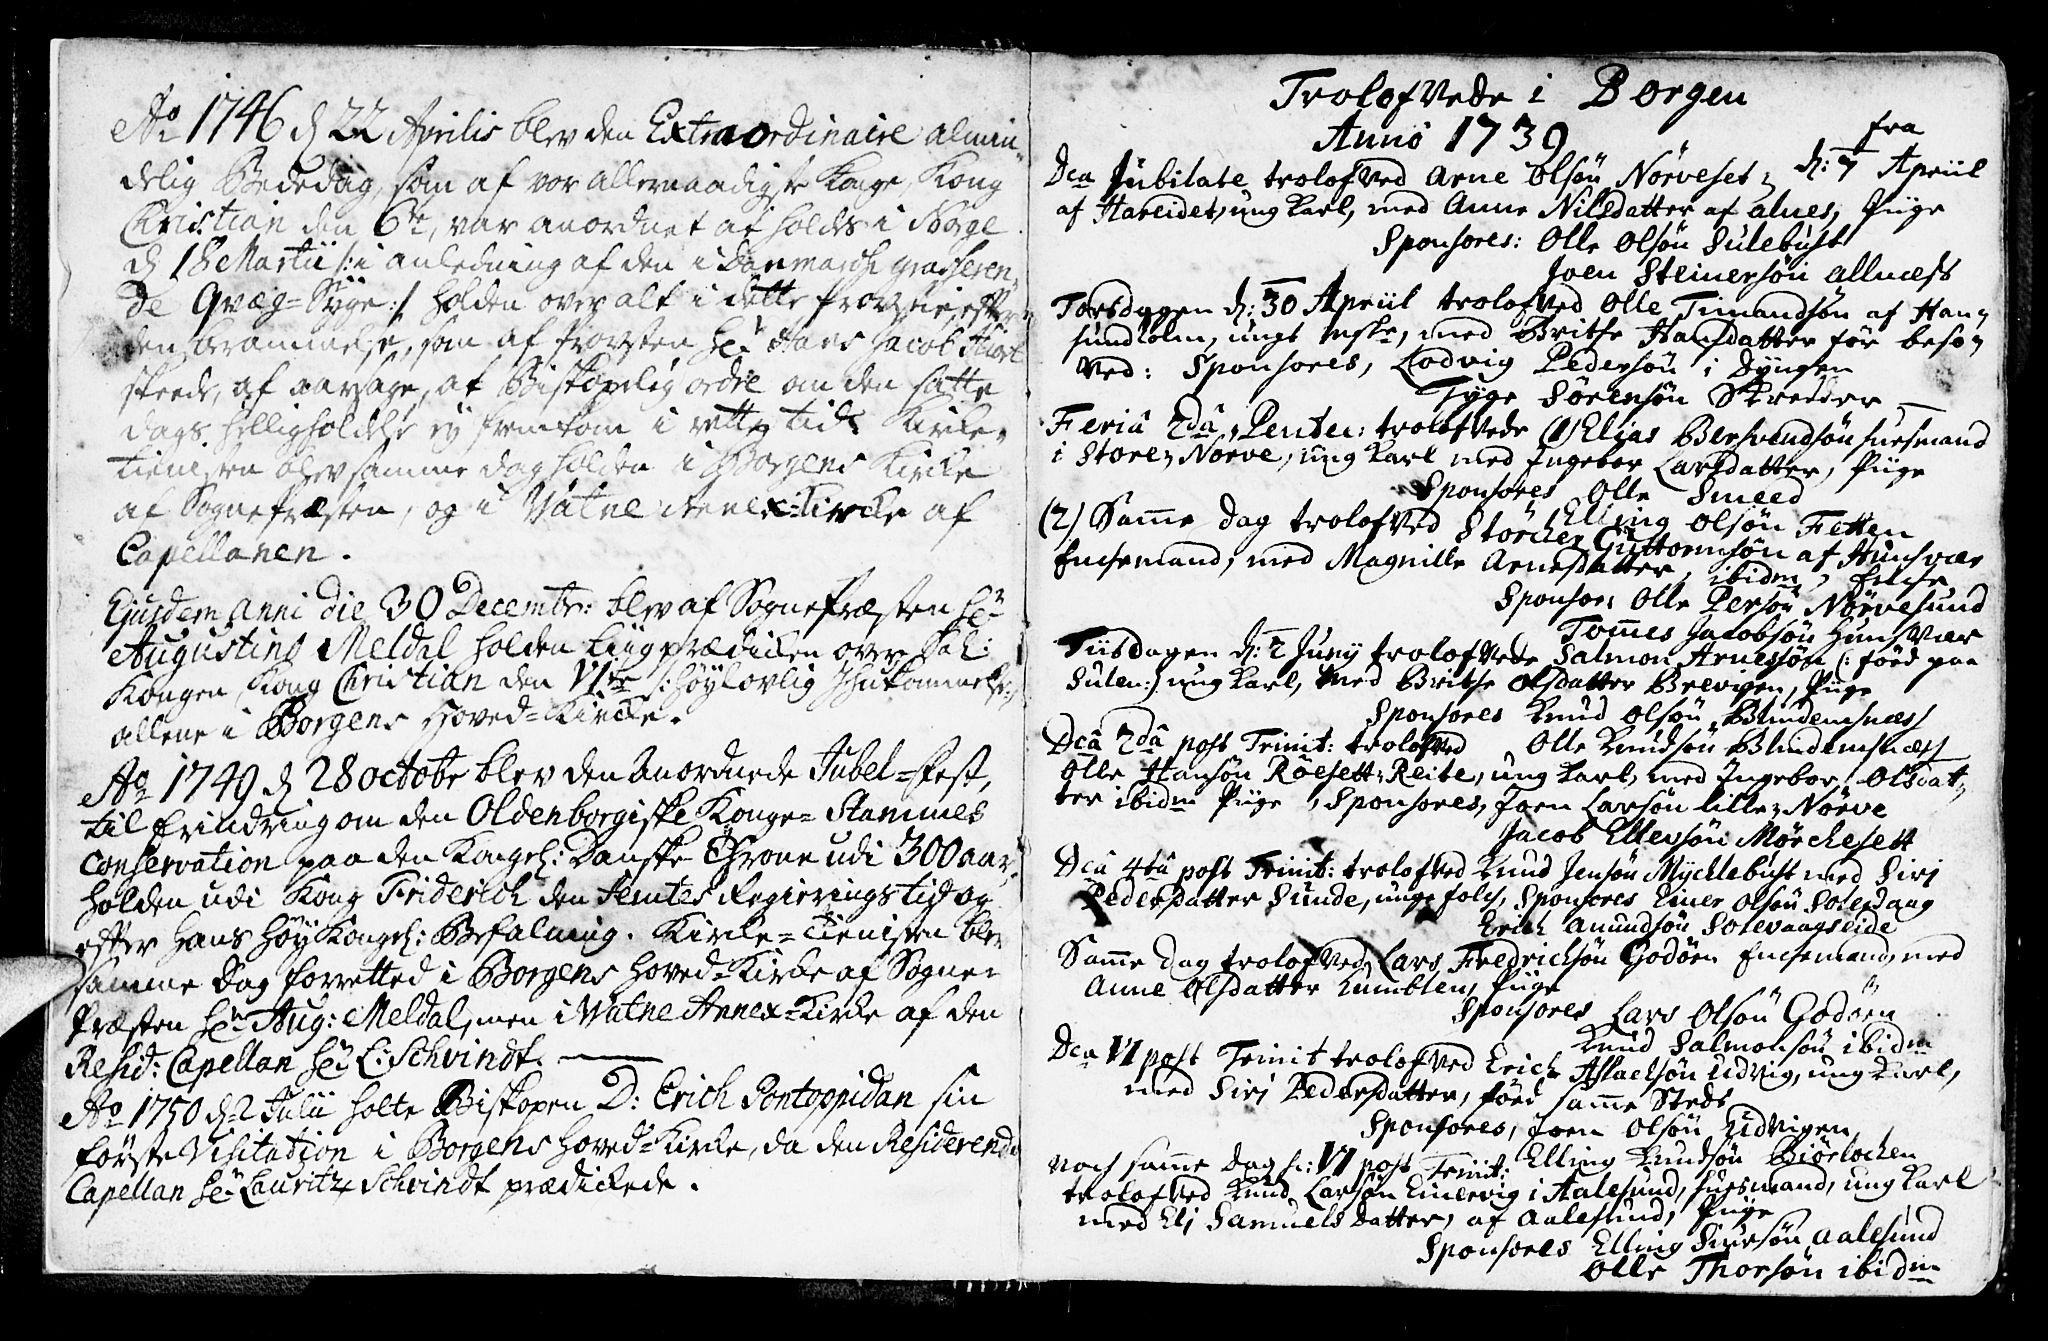 Ao 1746 d 22 Aprilis blev den Extraordinaire almin
delig Bededag, som af vor allernaadigste Konge, Kong
Christian den 6te, var anordnet at holdes i Norge
d 18 Martii /: i anledning af den i Danmarch grasseren
de Qvæg=Syge :/ holden over alt i dette Provstie, efter
den berammelse, som af Provsten Hr Hans Jacob
skeede, af aarsage, at Biskopelig ordre om den satte
dags helligholdelse ey fremkom i rette tid. Kirke-
tienisten blev samme dag holden i Borgens Kirke
af Sognepræsten, og i Vatne Annex=Kircke af
Capellanen.
Ejusdem Anni die 30 Decembr: blev af Sognepræsten Hr
Augustino Meldal holden Liigprædicken over Sal:
Kongen Kong Christian den VIte /: høylovlig Ihukommelse :/
allene i Borgens Hoved=Kircke.
Ao 1749 d 28 octobr blev den Anordnede Jubel=Fest,
til Erindring om den Oldenborgiske Konge=Stammes
conservation paa den Kongel: Danske Throne udi 300 aar,
holden udi Kong Friderich den Femtes Regierings tid og
efter Hans Høy Kongel: Befalning. Kirke=Tienisten blev
samme Dag forretted i Borgens Hoved=Kirke af Sogne-
Præsten Hr Aug: Meldal, men i Vatne Annex=Kirke af den
Resid: Capellan Hr L: Schvindt.
Ao 1750 d 2 Julii holte Biskopen D: Erich Pontoppidan sin
første Visitation i Borgens Hoved=Kirke, da den Residerende
Capellan Hr Lauritz Schvindt prædickede.
Trolofvede i Borgen
Anno 1739
fra
Dca Jubilate trolofved Arne Olsøn Nørveset d: 7 Apriil
af Hareidet, ung karl, med Anne Nilsdatter af alnes, Piige
Sponsores: Olle Olsøn Sulebust
Joen Steinersøn Allnæss
Torsdagen d: 30 Apriil trolofved Olle Timandsøn af Han-
sundholm, ungt mske, med Brithe Hansdatter før beso-
ved: Sponsores, Lodvig Pedersøn i Dyngen
Tyge Sørensøn Skredder
Feriâ 2dâ Pentec: trolofvede (1) Elias Bersvendsøn huusmand
i Store-Nørve, ung karl med Ingebor Larsdatter, Piige
Sponsores Olle Smeed
Elling Olsøn Fetten
(2) Samme dag trolofved Størcker Guttormsøn af Hunsvær
Enchemand, med Magnille Arnesdatter, ibidm, Enche
Sponsor: Olle Persøn Nørvesund
Tomes Jacobsøn Hunsvær
Tiisdagen d: 2 Juny trolofvede Salmon Arnessøn (: føed paa
Sulen:) ung karl, med Brithe Olsdatter Brevigen, Piige
Sponsores Knud Olsøn Blindemsnæss
Olle Knudsøn Blindemsnæss
Dcâ 2dâ post Trinit: trolofved
Olle Hansøn Røesett-Reite, ung karl, med Ingebor Olsdat-
ter ibidm Piige, Sponsores, Joen Larsøn lille-Nørve
Jacob Ellersøn Mørchesett
Dcâ 4tâ post Trinit: trolofved Knud Jensøn Mycklebust med Siri
Pedersdatter Sunde, unge folch, Sponsores Einer Olsøn Solevaag
Erich Amundsøn Solevaagseide
Samme dag trolofved Lars Fredricksøn Godøen Enchemand, med
Anne Olsdatter Humblen, Piige
Sponsores Lars Olsøn Godøen
Knud Salmonsøn ibidm
Dca VI post Trinit trolofved Erich Aslachsøn Udvig, ung karl,
med Siri Pedersdatter, føed samme Steds
Sponsores, Joen Olsøn Udvigen
Elling Knudsøn Biørlochen
noch samme dag sc: VI post Trinit:
trolofved Knud Larsøn Einervig i Aalesund, huusmand, ung karl
med Eli Samuelsdatter, af Aalesund, Piige
Sponsores Elling Siursøn Aalesund
Olle Thorsøn ibidm